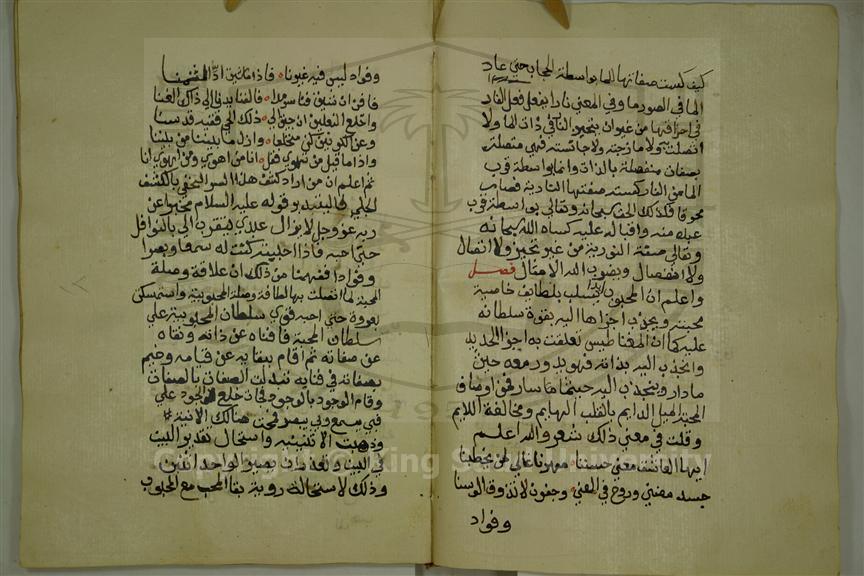 كيف كست صفاتها الما بواسطة الحجاب حتى عاد
الما في الصورة ما وفي المعنى نارا يفعل فعل النار
في احراقها من غير ان يتحيز النار في ذات الما ولا
اتصلت به ولا مازجته ولا جانسته فهي متصلة
بصفات منفصلة بالذات وانما بواسطة قرب
الما من النار كسته صفتها النارية فصار
محرقا فكذلك الحق سبحانه وتعالى بواسطة قرب
عبده منه واقباله عليه كساه الله سبحانه
وتعالى صفة النورية من غير تحيز ولا اتصال
ولا انفصال ويضرب الله الامثال فصل
واعلم ان المحبوب ابدا يسلب بلطايف خاصية
محبته ويجذب اجزاها اليه بقوة سلطانه
عليها كما ان المغناطيس تعلقت به اجزا الحديد
وانجذب اليه بذاته فهو يدور معه حيث
ما دار وينجذب اليه حيثما سار فمن اوصاف
المحبة الميل الدايم بالقلب الهايم ومخالفة اللايم
وقلت في معنى ذلك شعر والله اعلم
ايها العاشق معنى حسننا مهرنا غالي لمن يخطبنا
جسد مضنى وروح في العنا وجفون لا تذوق الوسنا
وفواد
وفواد ليس فيه غيرنا فاذا ما شيت ادّ الثمنا
فافن ان شيت فنا سرمدا فالفنا يدني الى ذاك الفنا
واخلع النعلين ان جيت الى ذلك الحي ففيه قدسنا
وعن الكونين كن منخلعا وازل ما بيننا من بيننا
واذا ما قيل من تهوى فقل انا من اهوى ومن اهوى انا
ثم اعلم ان من اراد كشف هذا السر الخفي بالكشف
الجلي فاليفيد وقوله عليه السلام مخبرا عن
ربه عز وجل لا يزال عبدي يتقرب الى بالنوافل
حتى احبه فاذا احببته كنت له سمعا وبصرا
وفوادا ففهمنا من ذلك ان علاقة وصلة
المحبة لما اتصلت بها لطافة وصلة المحبوبية واستمسكن
بعروة حتى احبه قوي سلطان المحبوبية على
سلطان المحبة فافناه عن ذاته ونفاه
عن صفاته ثم اقام ببقايه عن قيامه وخيم
بصفاته في فنايه فتبدلت الصفات بالصفات
وقام الوجود بالوجود فان خلع الوجود على
فبي يسمع وبي يبصر فمحت هنالك الانية
وذهبت الاثنينية واستحال تعدد البيت
في البيت وتعذر ان يصير الواحد اثنين
وذلك لاستحالة روية بقا المحب مع المحبوب
Copyright © King Saud University
1957